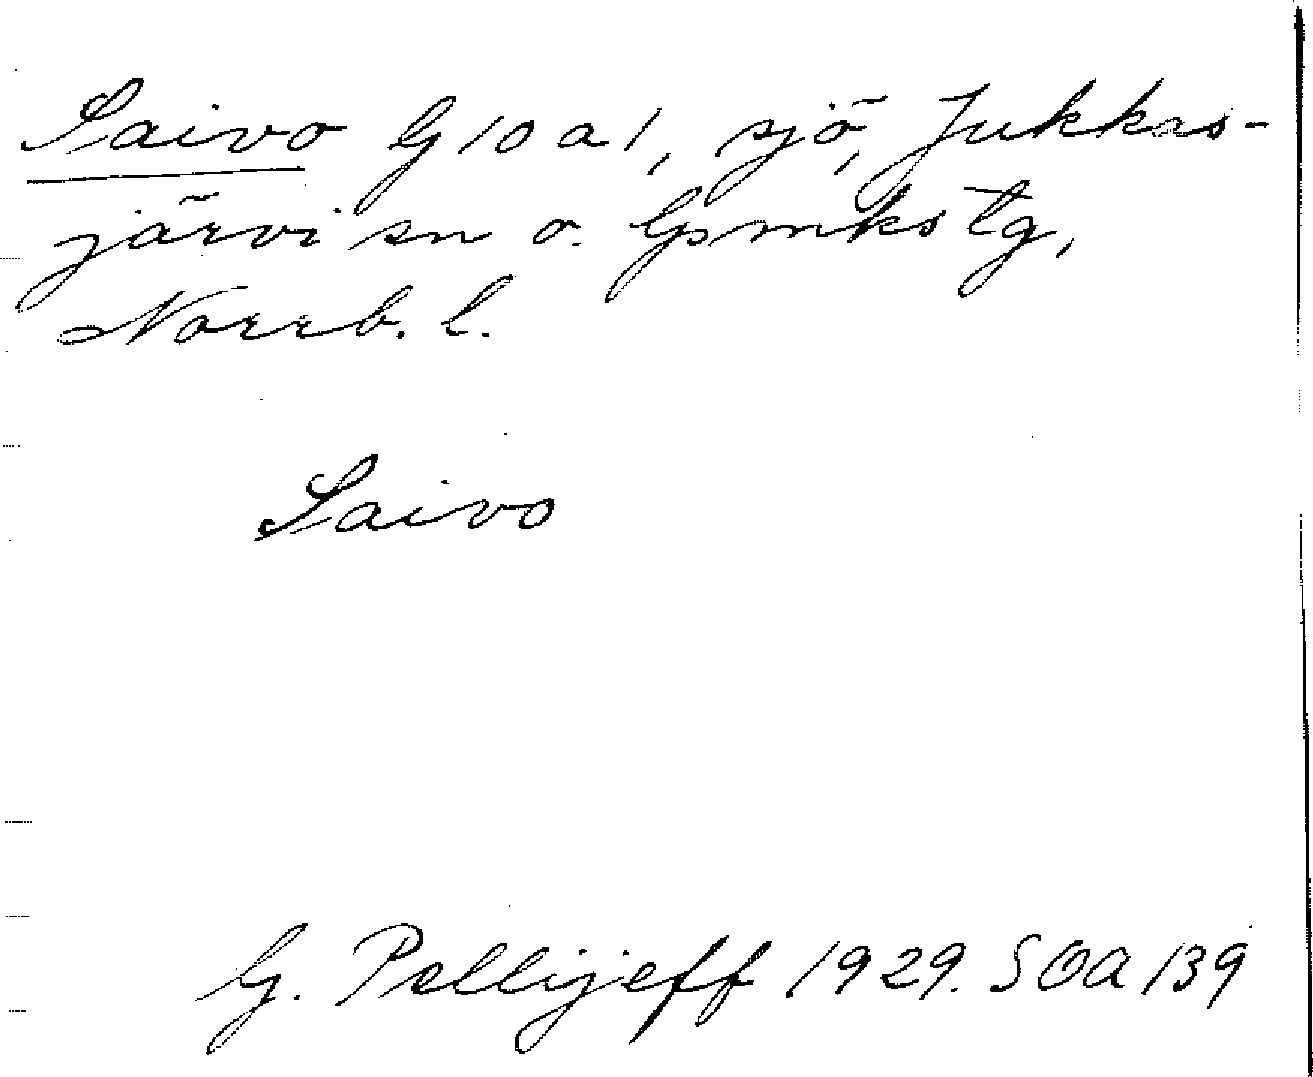 Saivo G 10 a 1, sjö, Jukkas-
järvi sn o. lpmks tg,
Norrb. l.
Saivo
G. Pellijeff 1929. SOA 139